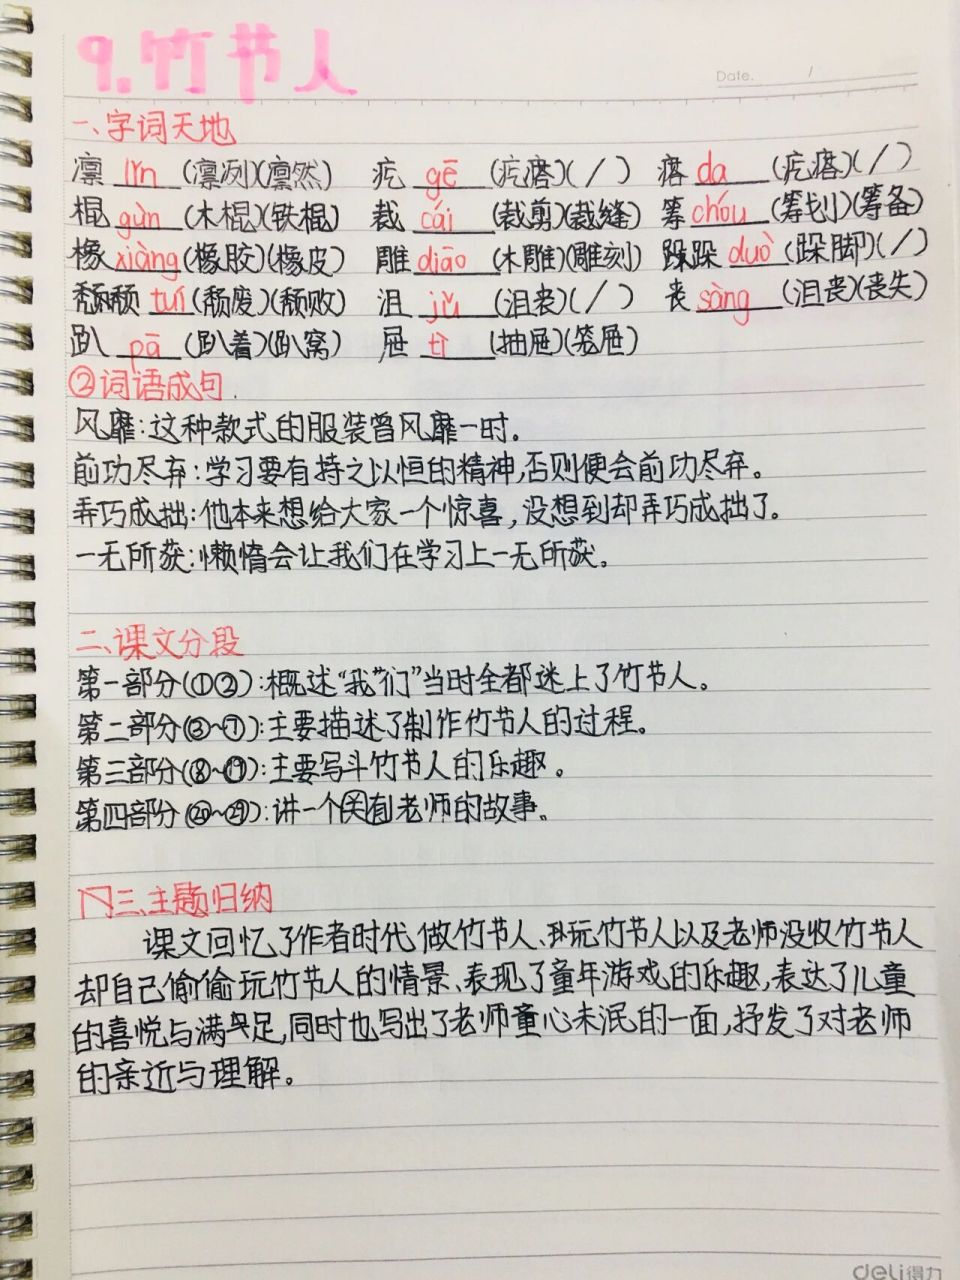 9.竹节人
Date. /
一、字词天地
凛 lǐn (凛冽)(凛然) 疙 gē (疙瘩)(/) 瘩 da (疙瘩)(/)
棍 gùn (木棍)(铁棍) 裁 cái (裁剪)(裁缝) 筹 chóu (筹划)(筹备)
橡 xiàng (橡胶)(橡皮) 雕 diāo (木雕)(雕刻) 跺跺 duò (跺脚)(/)
颓颓 tuí (颓废)(颓败) 沮 jǔ (沮丧)(/) 丧 sàng (沮丧)(丧失)
趴 pā (趴着)(趴窝) 屉 tì (抽屉)(笼屉)
②词语成句.
风靡:这种款式的服装曾风靡一时。
前功尽弃:学习要有持之以恒的精神,否则便会前功尽弃。
弄巧成拙:他本来想给大家一个惊喜,没想到却弄巧成拙了。
一无所获:懒惰会让我们在学习上一无所获。
二、课文分段
第一部分(①②):概述“我们”当时全都迷上了竹节人。
第二部分(③~⑦):主要描述了制作竹节人的过程。
第三部分(⑧~⑲):主要写斗竹节人的乐趣。
第四部分(⑳~㉙):讲一个关有老师的故事。
三、主题归纳
课文回忆了作者时代做竹节人、玩竹节人以及老师没收竹节人
却自己偷偷玩竹节人的情景、表现了童年游戏的乐趣,表达了儿童
的喜悦与满足,同时也写出了老师童心未泯的一面,抒发了对老师
的亲近与理解。
deli得力